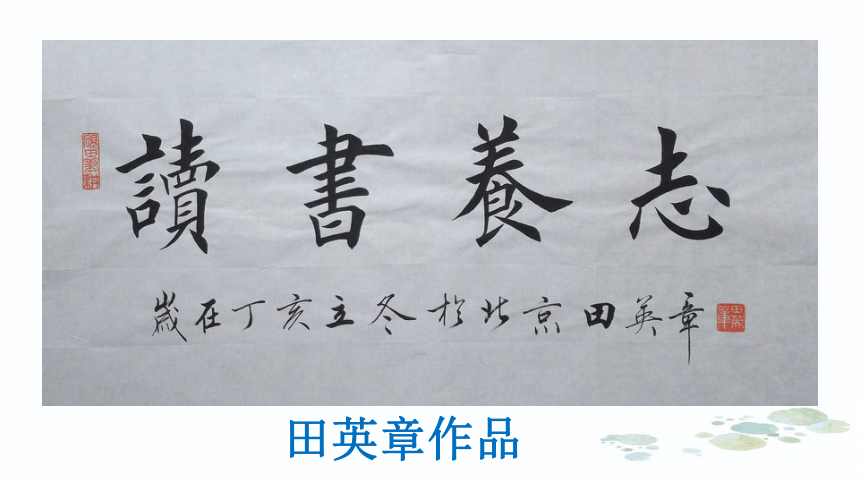 讀書養志
歲在丁亥立冬於北京田英章
田英章作品